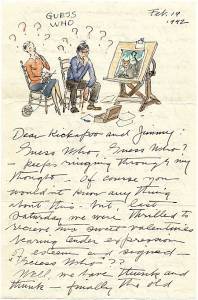 GUESS
WHO
Feb. 19
1942
Dear Rickapoo and Jimmy:
Guess Who, Guess Who?
— keeps ringing through my
thought — Of course you
wouldn't know any thing
about this. But, last
Saturday we were thrilled to
receive two sweet valentines
bearing tender expression
of esteem and signed —
"Guess Who"??
Well, we have thunk and
thunk — finally the old